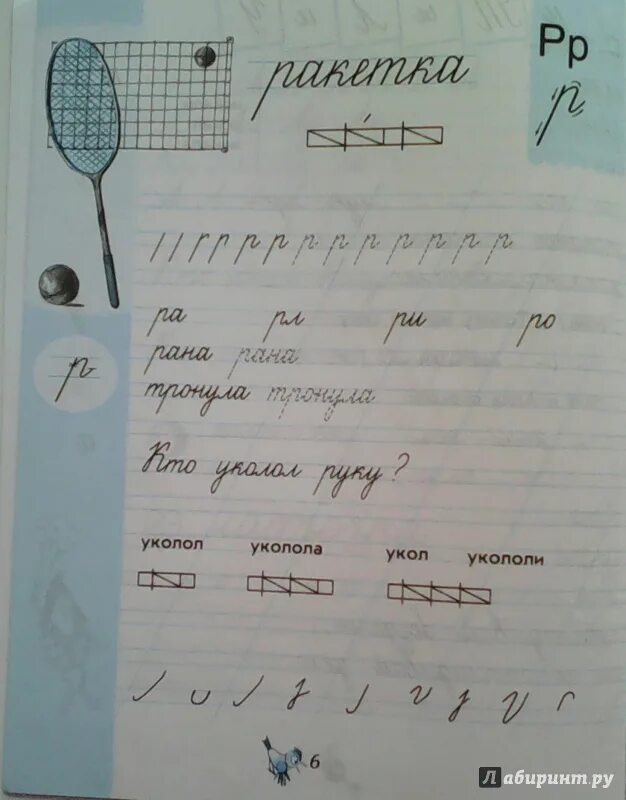 ракетка
Рр
р
р р р р р р р р р р
ра рл ри ро
р
рана рана
тронула тронула
Кто уколол руку?
уколол уколола укол укололи
6
Лабиринт.ру